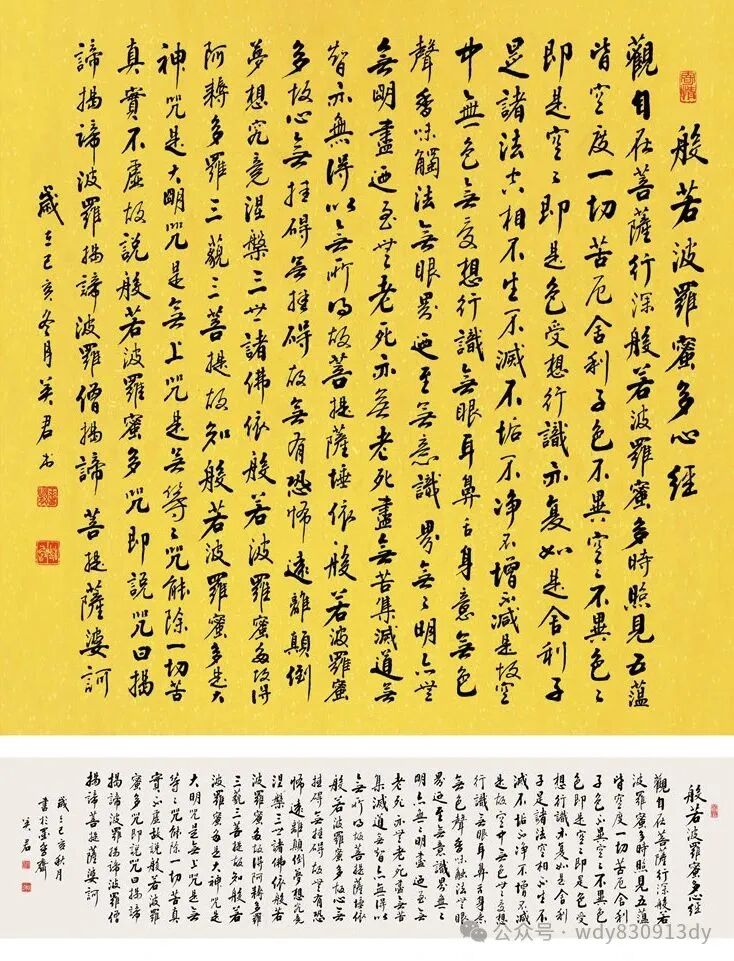 般若波羅蜜多心經
觀自在菩薩行深般若波羅蜜多時照見五蕴
皆空度一切苦厄舍利子色不異空〻不異色〻
即是空〻即是色受想行識亦复如是舍利子
是諸法空相不生不滅不垢不净不增不減是故空
中無色無受想行識無眼耳鼻舌身意無色
聲香味觸法無眼界迺至無意識界無〻明亦無
無明盡迺至無老死亦無老死盡無苦集滅道無
智亦無得以無所得故菩提薩埵依般若波羅蜜
多故心無挂碍無挂碍故無有恐怖遠離顛倒
夢想究竟涅槃三世諸佛依般若波羅蜜多故得
阿耨多羅三藐三菩提故知般若波羅蜜多是大
神咒是大明咒是無上咒是無等〻咒能除一切苦
真實不虛故説般若波羅蜜多咒即説咒曰揭
諦揭諦波羅揭諦波羅僧揭諦菩提薩婆訶
歲在己亥冬月英君书
般若波羅蜜多心經
觀自在菩薩行深般若
波羅蜜多時照見五蕴
皆空度一切苦厄舍利
子色不異空〻不異色
色即是空〻即是色受
想行識亦复如是舍利
子是諸法空相不生不
滅不垢不净不增不減
是故空中無色無受想
行識無眼耳鼻舌身意
無色聲香味觸法無眼
界迺至無意識界無〻
明亦無〻明盡迺至無
老死亦無老死盡無苦
集滅道無智亦無得以
無所得故菩提薩埵依
般若波羅蜜多故心無
挂碍無挂碍故無有恐
怖遠離顛倒夢想究竟
涅槃三世諸佛依般若
波羅蜜多故得阿耨多羅
三藐三菩提故知般若
波羅蜜多是大神咒是
大明咒是無上咒是無
等〻咒能除一切苦真
實不虛故説般若波羅
蜜多咒即説咒曰揭諦
揭諦波羅揭諦波羅僧
揭諦菩提薩婆訶
歲在己亥秋月
書於墨香齋
英君
公众号 · wdy830913dy